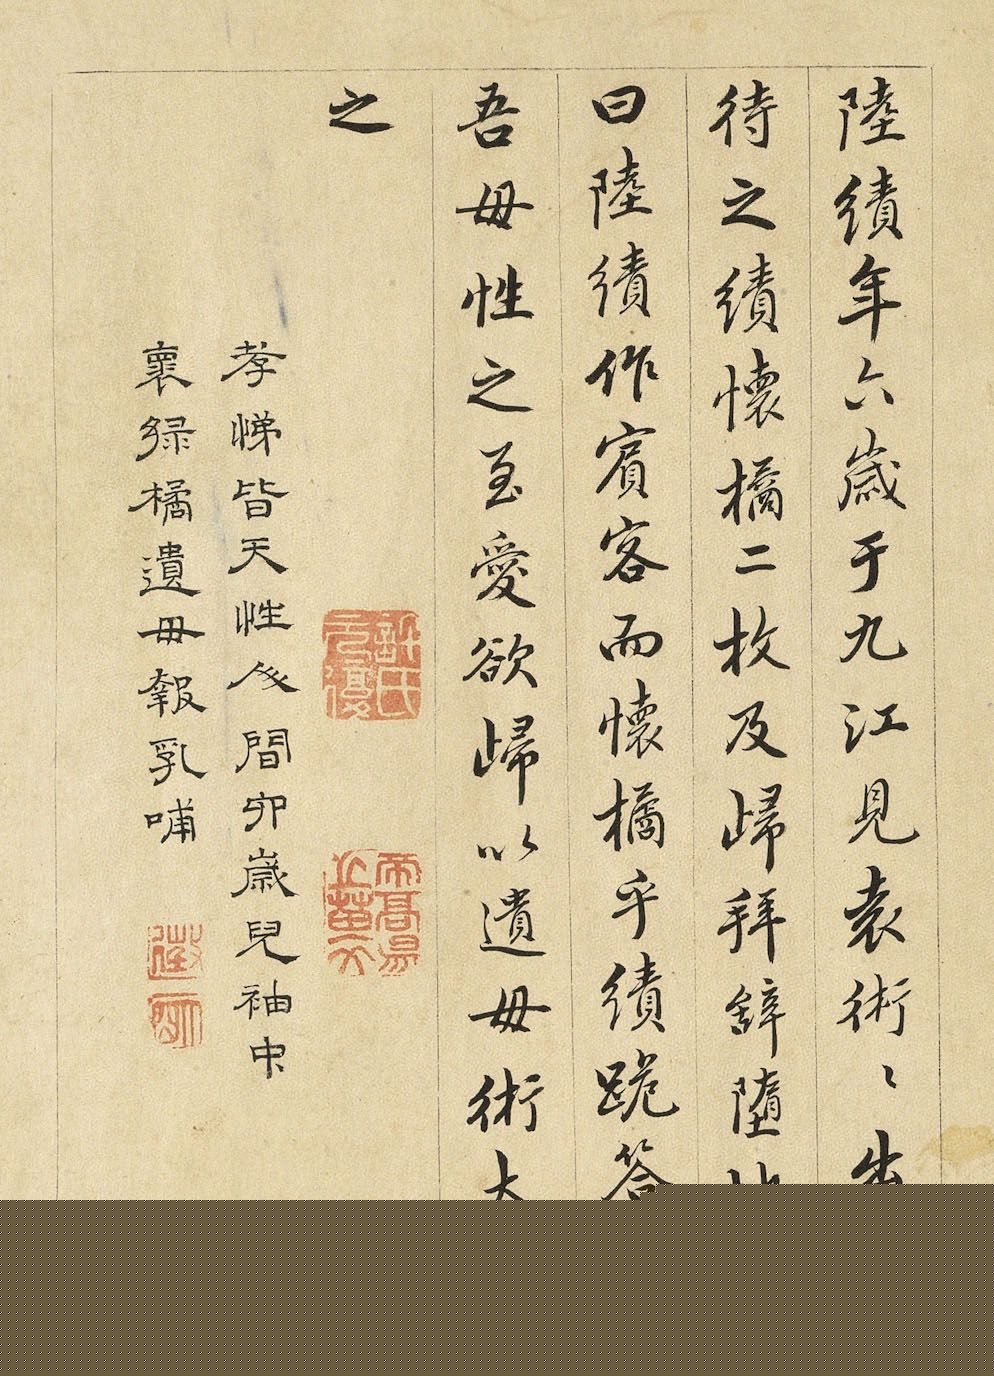 陸績年六歲于九江見袁術〻出
待之績懷橘二枚及歸拜辭墮地
曰陸績作賓客而懷橘乎績跪答
吾母性之至愛欲歸以遺母術大
之
許氏元復
帝高昜之苗裔
孝悌皆天性人間卯歲兒袖中
褱綠橘遺母報乳哺
徵明